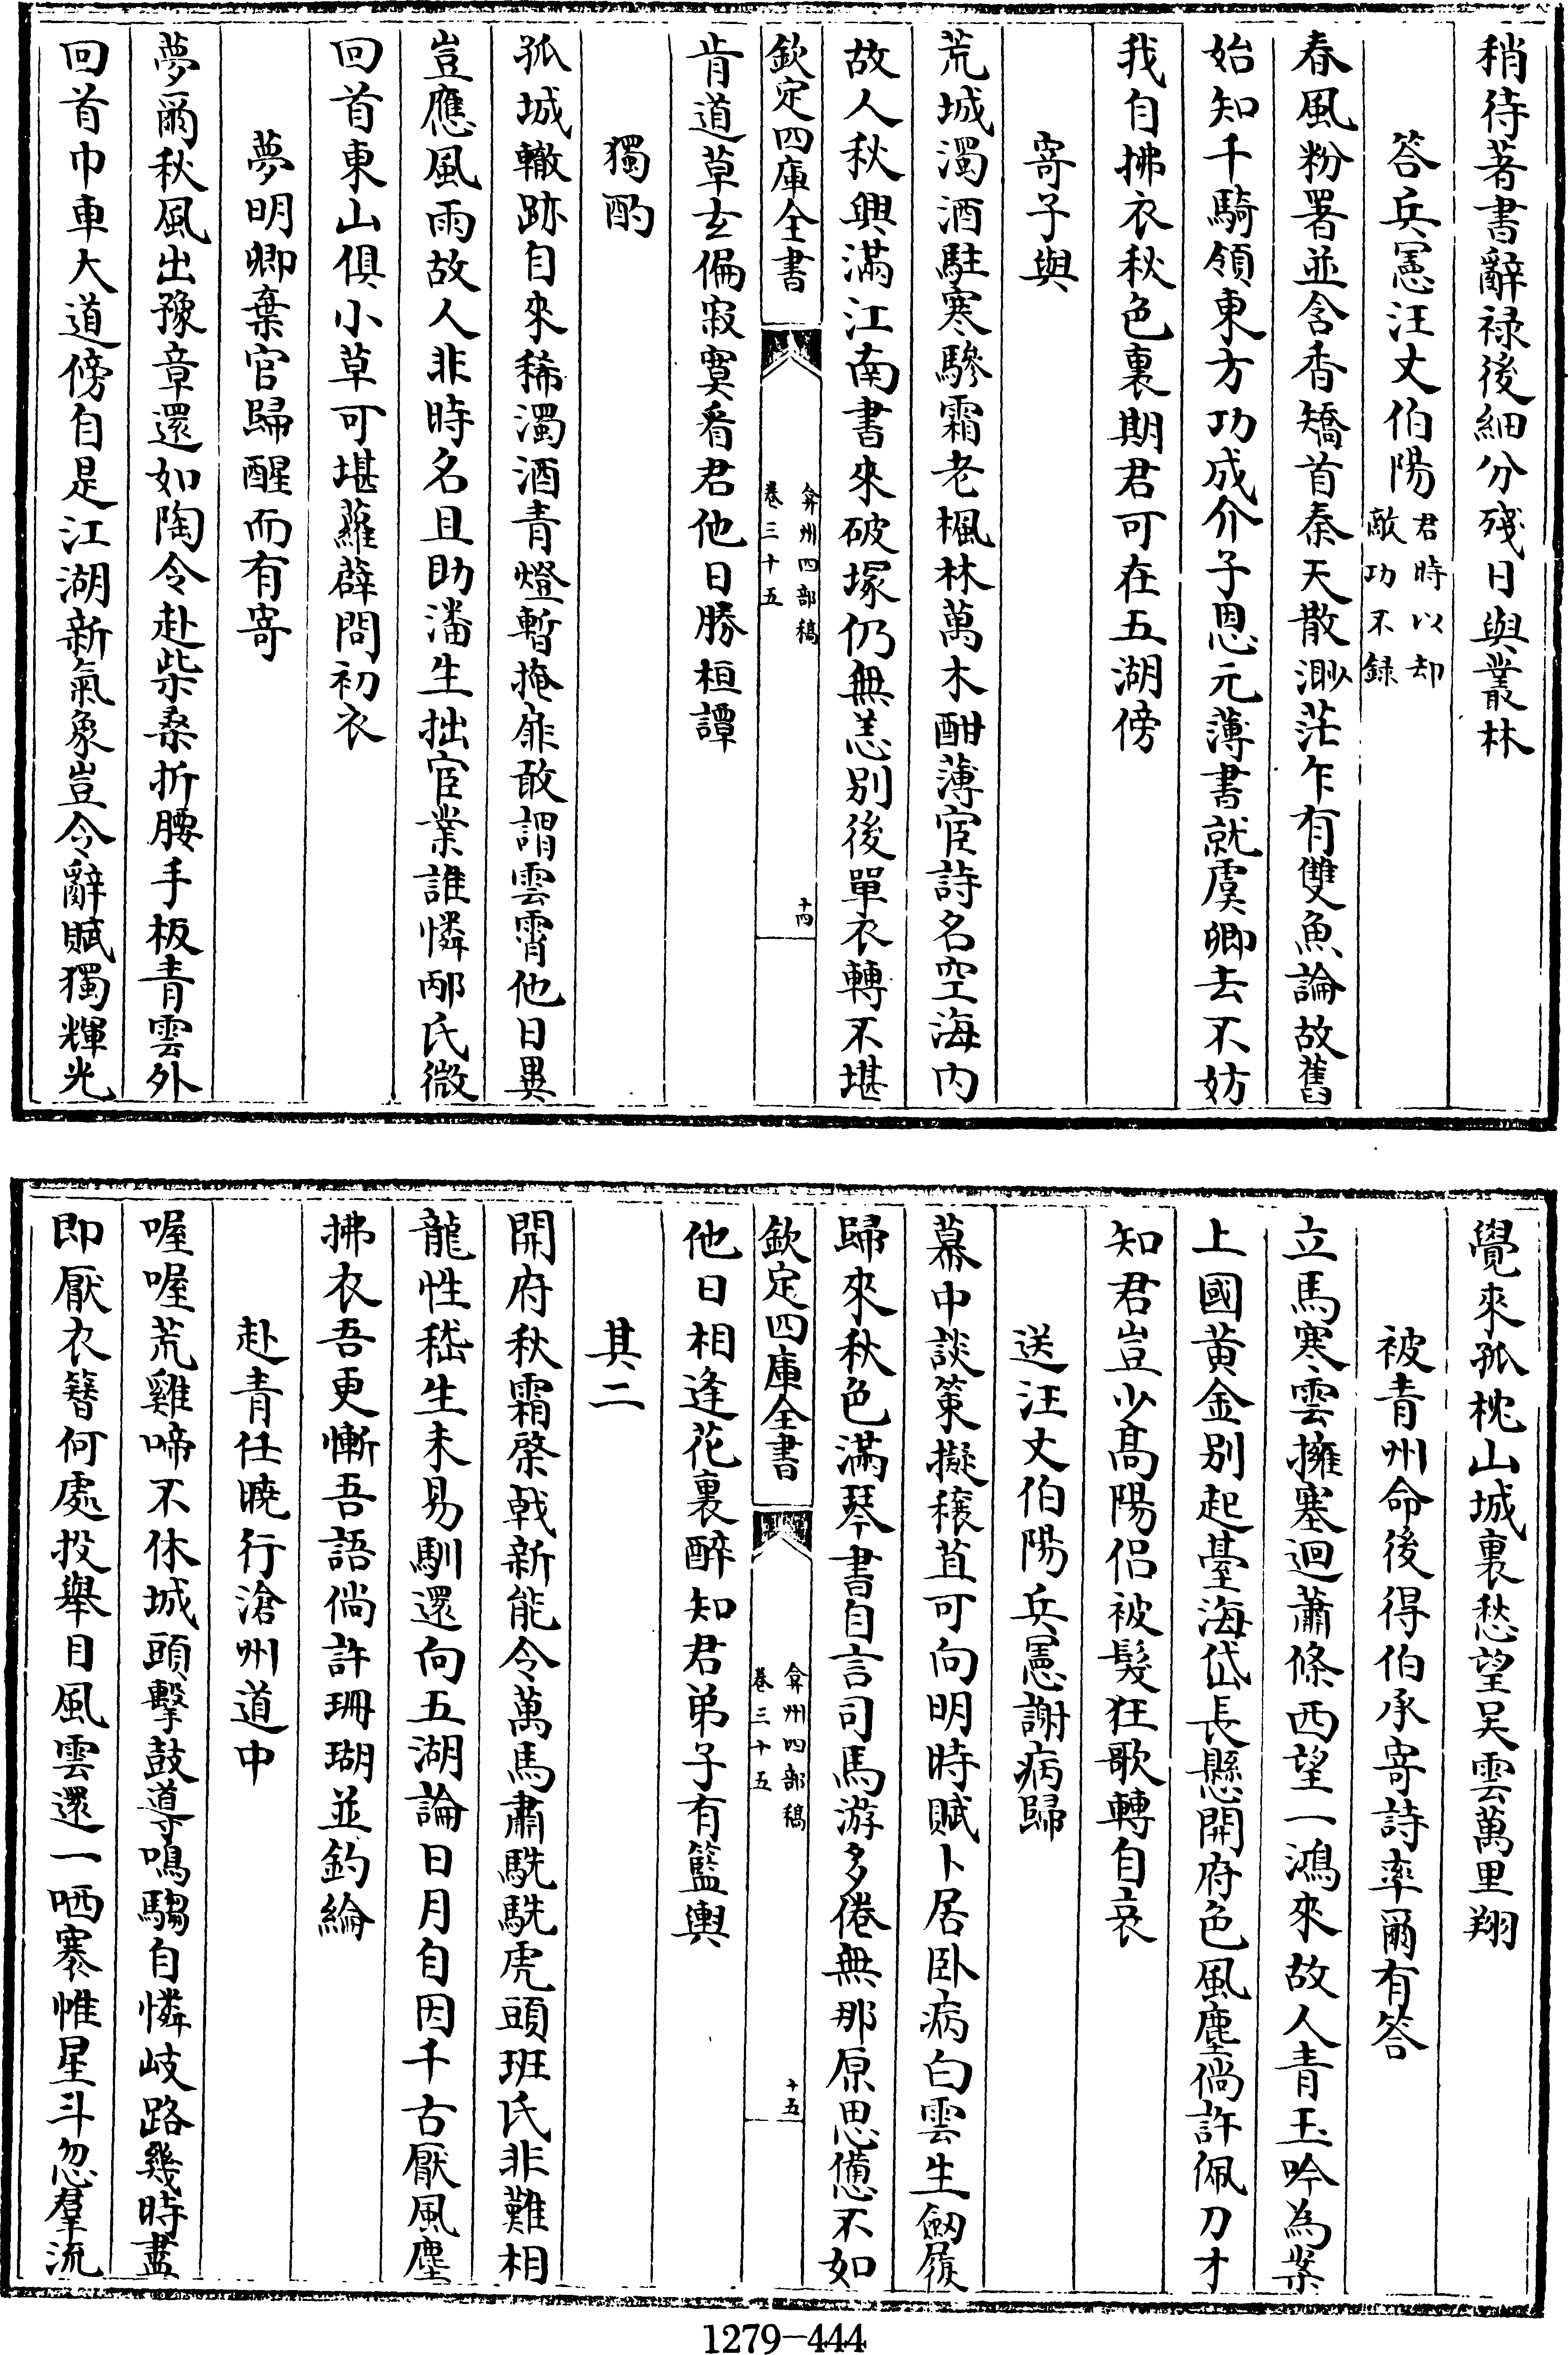 稍待著書辭祿後細分殘日與叢林
答兵憲汪丈伯陽君時以却敵功不録
春風粉署並含香矯首秦天散渺茫乍有雙魚論故舊
始知千騎領東方功成介子恩元薄書就虞卿去不妨
我自拂衣秋色裏期君可在五湖傍
寄子與
荒城濁酒駐寒驂霜老楓林萬木酣薄宦詩名空海內
故人秋興滿江南書來破塚仍無恙別後單衣轉不堪
欽定四庫全書
弇州四部稿
卷三十五
十四
肯道草玄偏寂寞看君他日勝桓譚
獨酌
孤城轍跡自來稀濁酒青燈暫掩扉敢謂雲霄他日異
豈應風雨故人非時名且助潘生拙宦業誰憐邴氏微
回首東山俱小草可堪蘿薜問初衣
夢明卿棄官歸醒而有寄
夢爾秋風出豫章還如陶令赴柴桑折腰手板青雲外
回首巾車大道傍自是江湖新氣象豈令辭賦獨輝光
覺來孤枕山城裏愁望吳雲萬里翔
被青州命後得伯承寄詩率爾有答
立馬寒雲擁塞迴蕭條西望一鴻來故人青玉吟為案
上國黃金別起臺海岱長懸開府色風塵倘許佩刀才
知君豈少高陽侶被髮狂歌轉自哀
送汪丈伯陽兵憲謝病歸
幕中談策擬穰苴可向明時賦卜居臥病白雲生劒履
歸來秋色滿琴書自言司馬游多倦無那原思憊不如
欽定四庫全書
弇州四部稿
卷三十五
十五
他日相逢花裏醉知君弟子有籃輿
其二
開府秋霜棨戟新能令萬馬肅駪駪虎頭班氏非難相
龍性嵇生未易馴還向五湖論日月自因千古厭風塵
拂衣吾更慚吾語倘許珊瑚並釣綸
赴青任曉行滄州道中
喔喔荒雞啼不休城頭擊鼓導鳴騶自憐岐路幾時盡
即厭衣簪何處投舉目風雲還一哂褰帷星斗忽羣流
1279-444